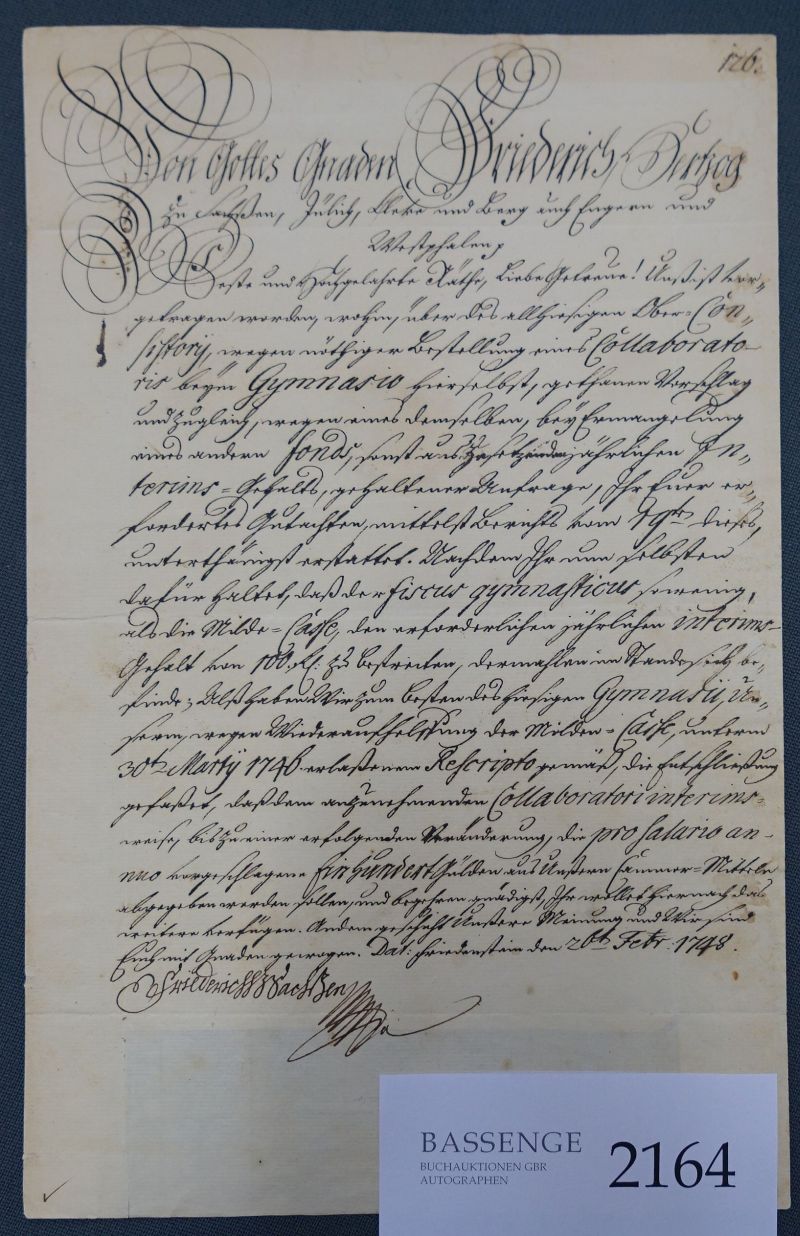 126.
Von Gottes Gnaden Friederich, Hertzog
zu Sachßen, Jülich, Cleve und Berg auch Engern und
Westphalen p
Veste und Hochgelahrte Räthe, Liebe Getreue! Unß ist vor-
getragen worden, wohin, über des allhiesigen Ober-Con-
sistorij, wegen nöthiger Bestellung eines Collaborato-
ris beym Gymnasio hierselbst, gethanen Vorschlag
und zugleich, wegen eines demselben, bey Ermangelung
eines andern fonds, sonst aus jährlichen In-
terims-Gehalts, gehaltener Anfrage, Ihr Euer er-
fordertes Gutachten, mittelst Berichts vom 19ten dieses,
unterthänigst erstattet. Nachdem Ihr nun selbsten
dafür haltet, daß der fiscus gymnasticus so wenig,
als die Milde-Casse, den erforderlichen jährlichen interims-
Gehalt von 100. fl: zu bestreiten, dermahlen im Stande sich be-
finde; Alß haben Wir zum Besten des hiesigen Gymnasii, Un-
serm, wegen Wiederaufhelffung der Milden-Casse, unterm
30ten Martij 1746 erlaßenem Rescripto gemäß, die Entschließung
gefaßet, daß dem anzunehmenden Collaboratori interims-
weise, bis zu einer erfolgenden Veränderung, die pro salario an-
nuo vorgeschlagene Ein Hundert Gülden aus Unßern Cammer-Mitteln
abgegeben werden sollen, und begehren gnädigst, Ihr wollet hiernach das
weitere verfügen. Andem geschiht Unßere Meinung und Wir sind
Euch mit Gnaden gewogen. Dat: Friedenstein den 26ten Febr. 1748.
Friederich HzSachßen
BASSENGE
BUCHAUKTIONEN GBR
AUTOGRAPHEN
2164